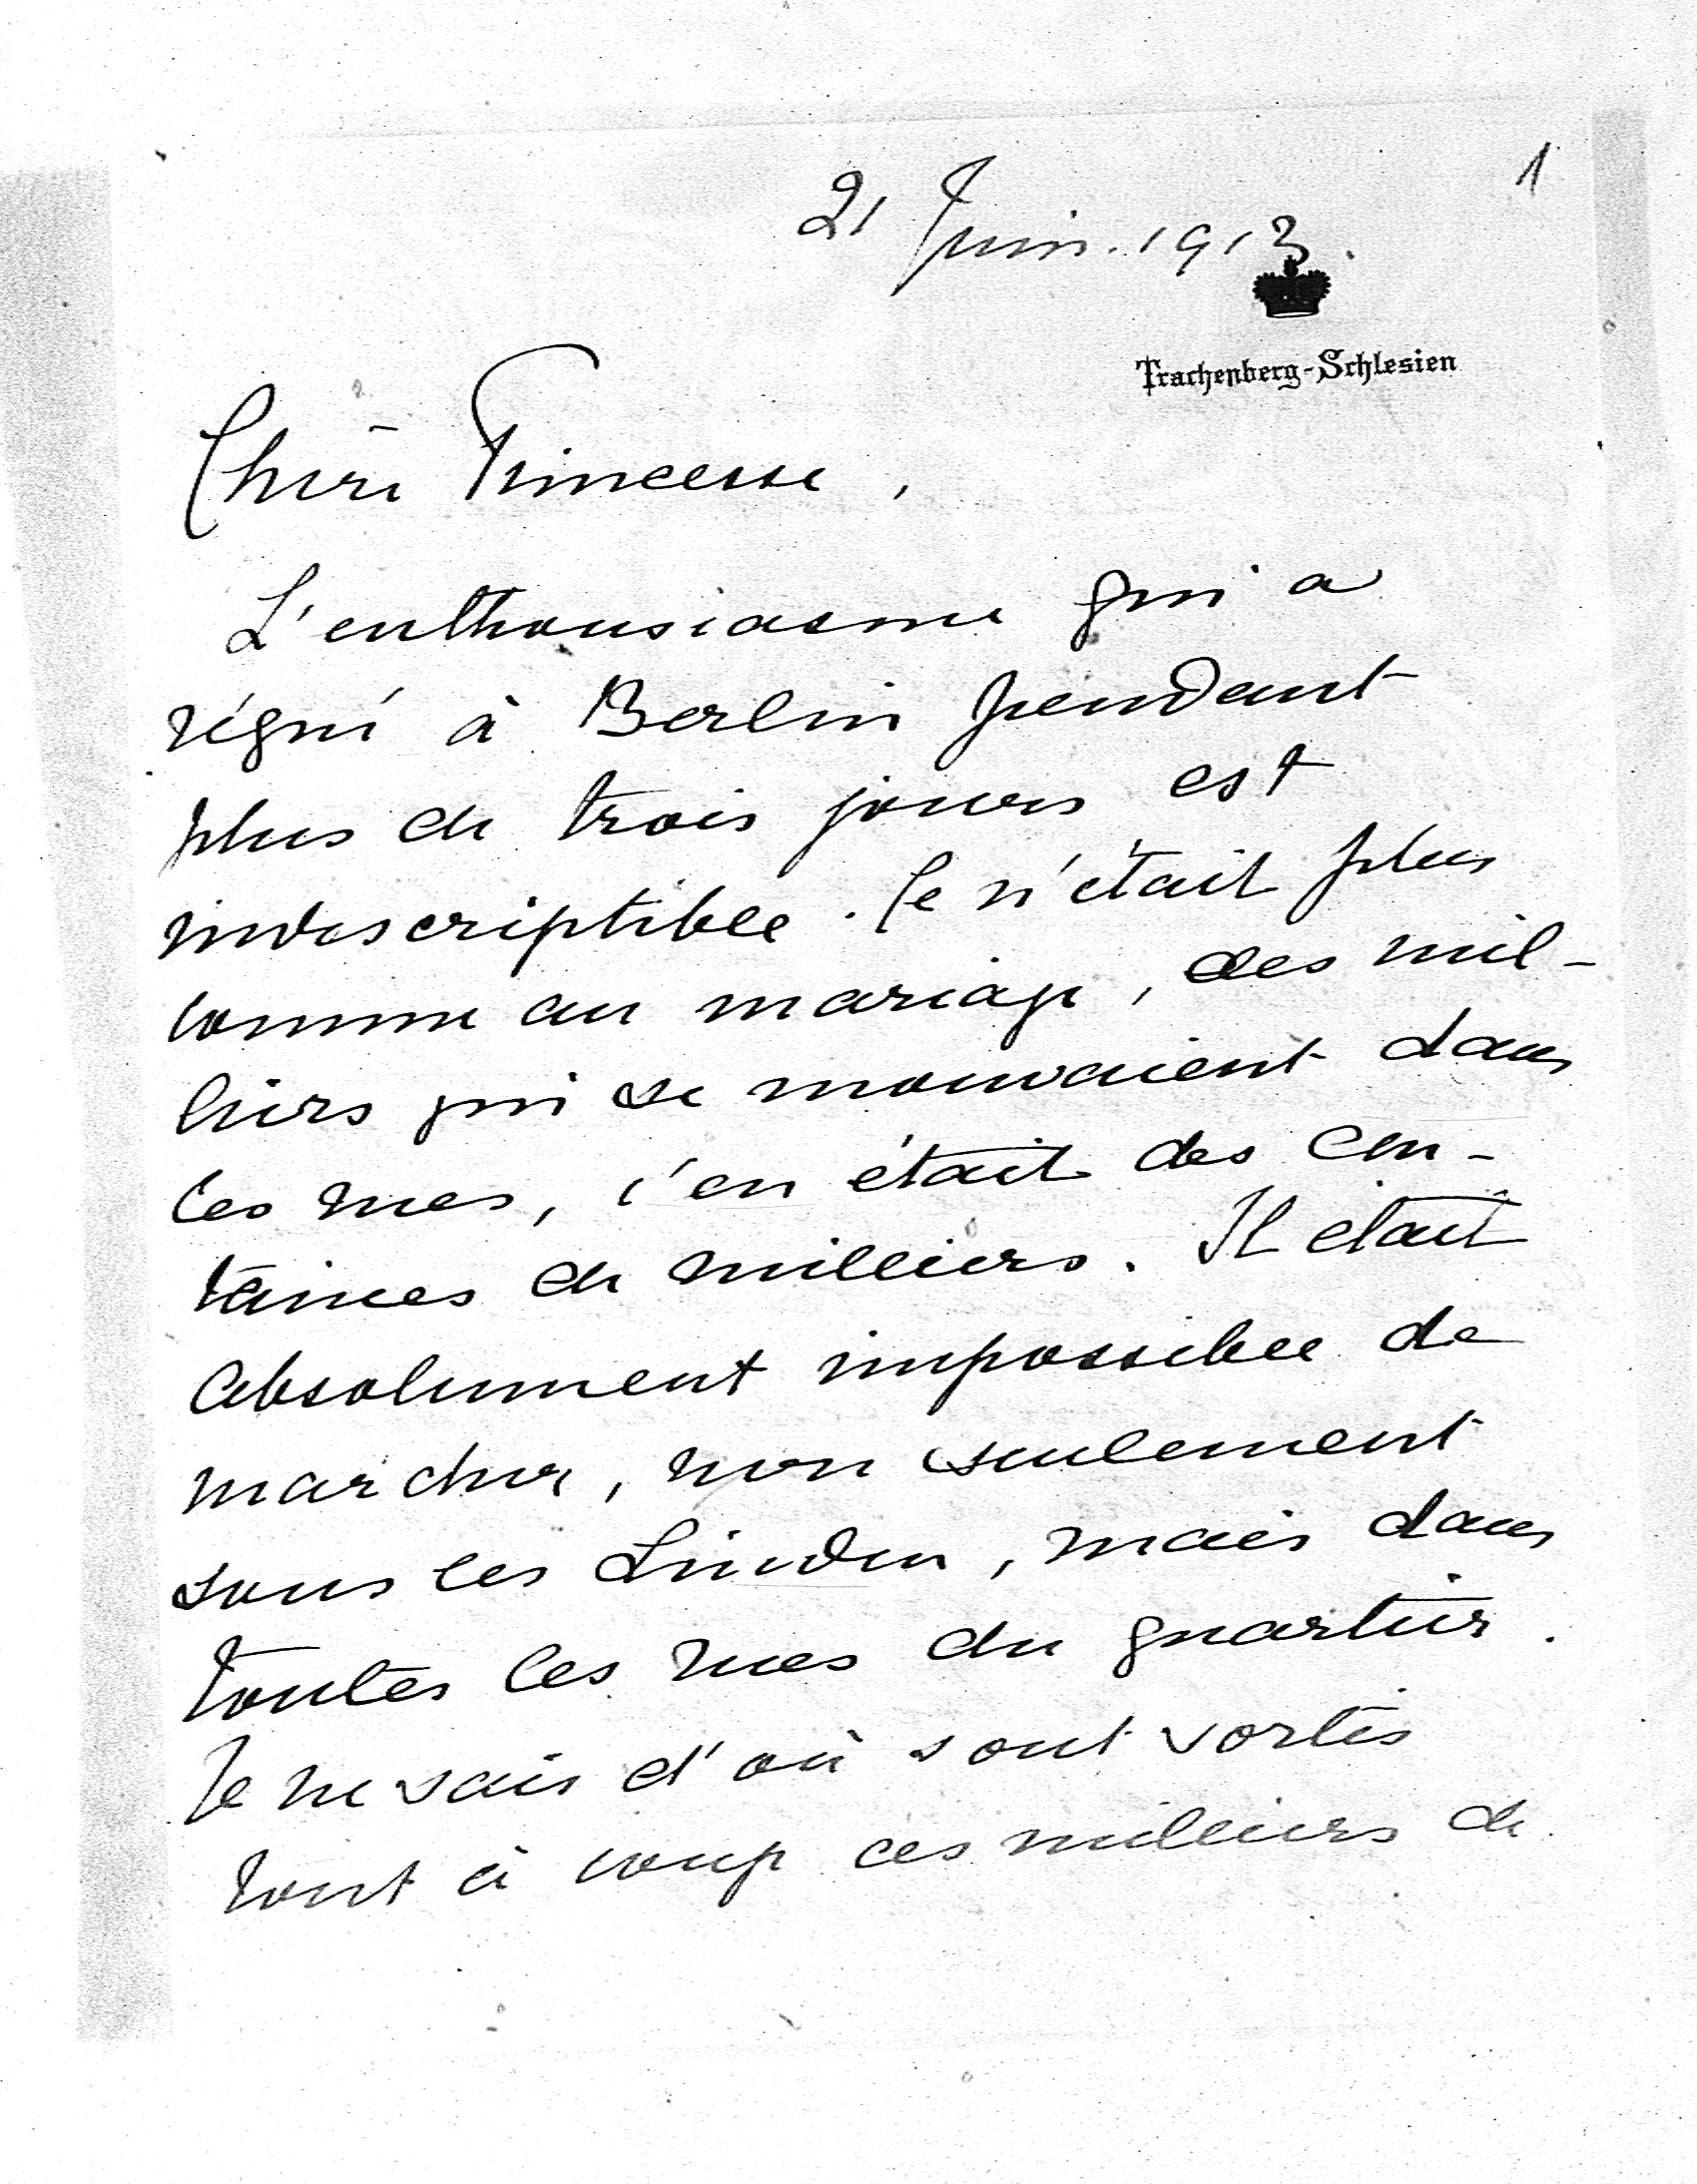 1
21 Juin. 1913.
Trachenberg-Schlesien
Chère Princesse,
L'enthousiasme qui a
régné à Berlin pendant
plus de trois jours est
indescriptible. Ce n'était plus
comme au mariage, des mil-
liers qui se mouvaient dans
les rues, c'en était des cen-
taines de milliers. Il était
absolument impossible de
marcher, non seulement
sous les Linden, mais dans
toutes les rues du quartier.
Je ne sais d'où sont sortis
tout à coup ces milliers de